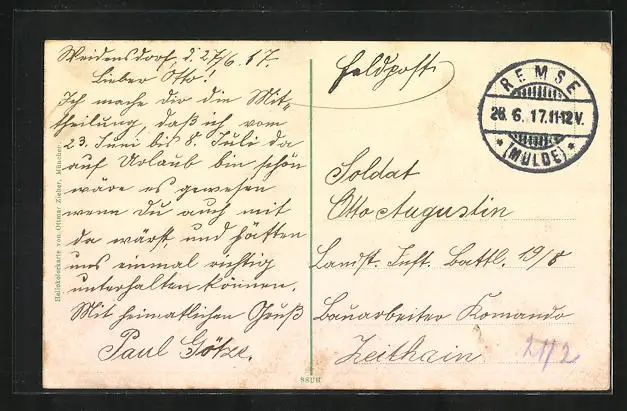 Weidensdorf, d. 27/6. 17.
Lieber Otto!
Ich mache dir die Mit-
theilung, daß ich vom
23. Juni bis 8. Juli da
auf Urlaub bin schön
wäre es gewesen
wenn Du auch mit
da wärst und hätten
uns einmal richtig
unterhalten können.
Mit heimatlichen Gruß
Paul Götze.
Heliokolorkarte von Ottmar Zieher, München.
Feldpost
REMSE
28. 6. 17. 11-12 V.
* (MULDE) *
Soldat
Otto Augustin
Landst. Inft. Battl. 19/8
Bauarbeiter Komando
Zeithain.